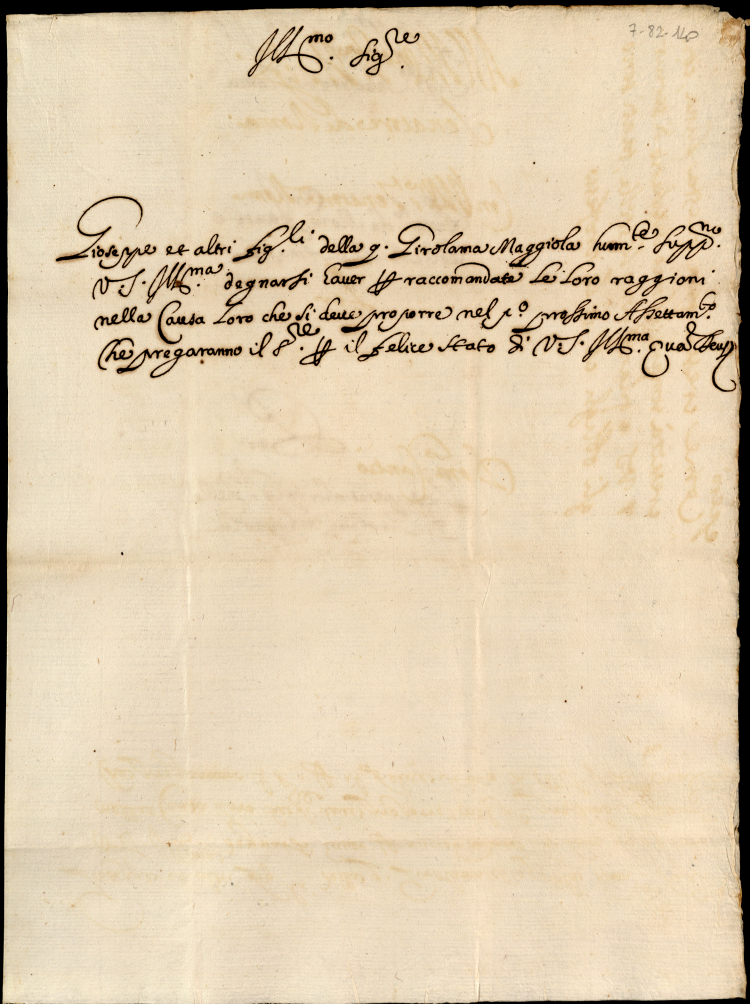 7-82-140
Ill.mo Sig.re
Gioseppe et altri fig.li della q. Girolama Maggiola hum.te supp.no
V.S. Ill.ma degnarsi haver p raccomandate le loro raggioni
nella Causa loro che si deve proporre nel p.o prossimo Assettam.to
che pregaranno il S.re p il felice stato di V.S. Ill.ma